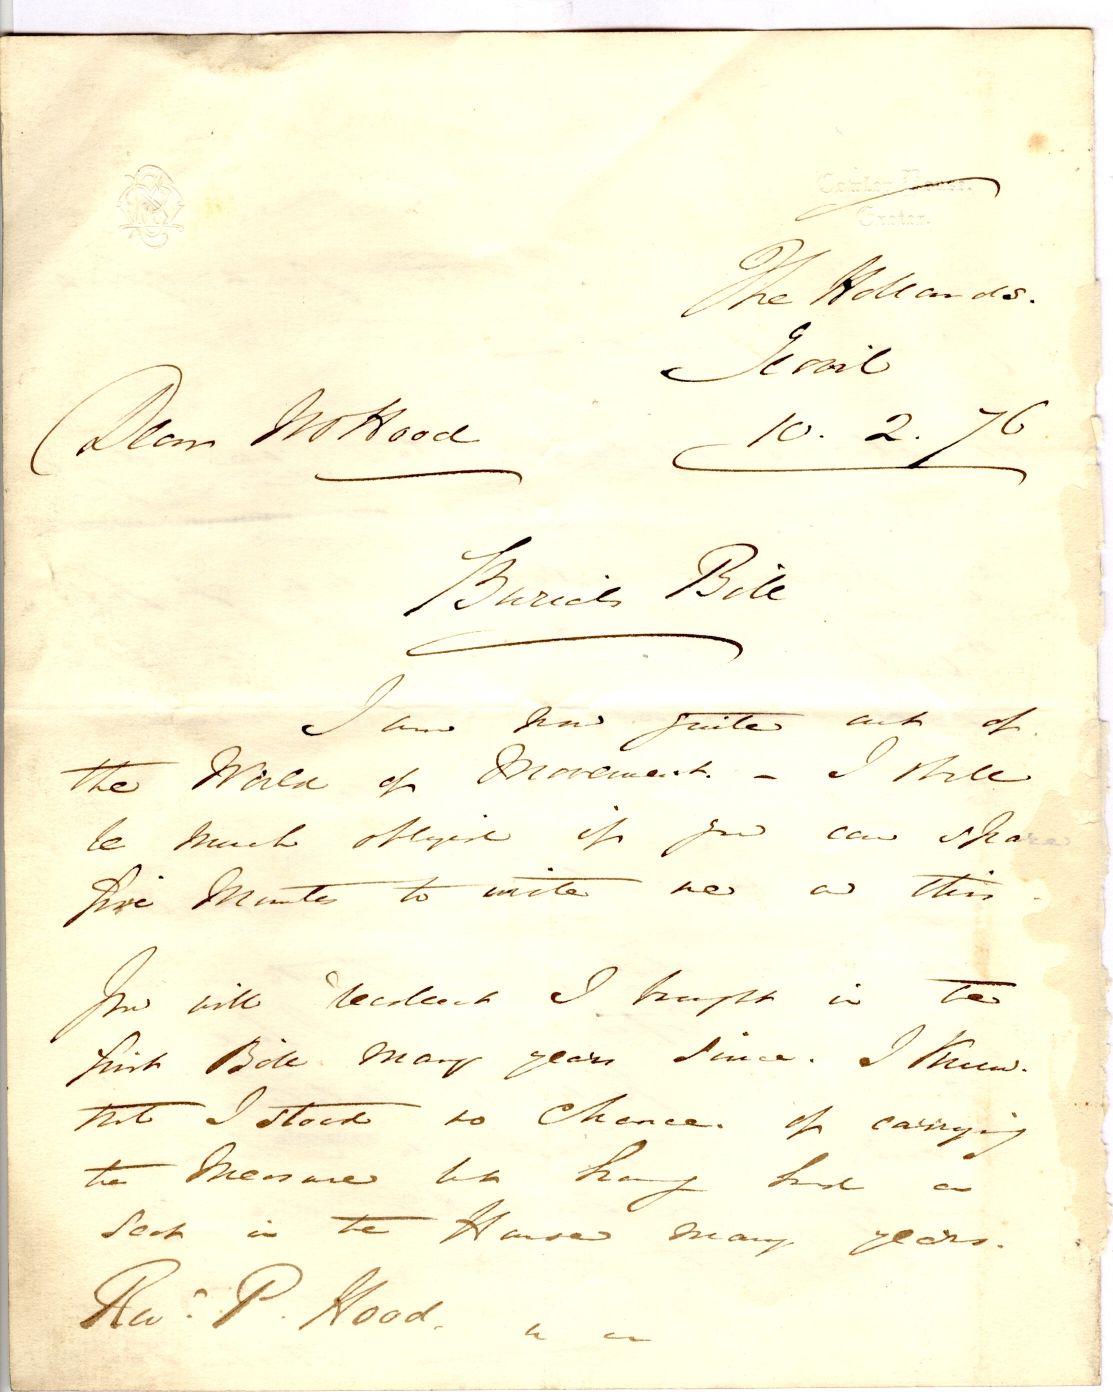 Cowley House,
Exeter.
The Hollands.
Yeovil
10. 2. 76
Dear Mr Hood
Burials Bill
I am now quite out of
the World of Movement. - I shall
be much obliged if you can spare
five Minutes to write me on this.
You will recollect I brought in the
first Bill many years since. I knew.
that I stood no chance. of carrying
the Measure but having had a
seat in the House many years.
Revd. P. Hood.